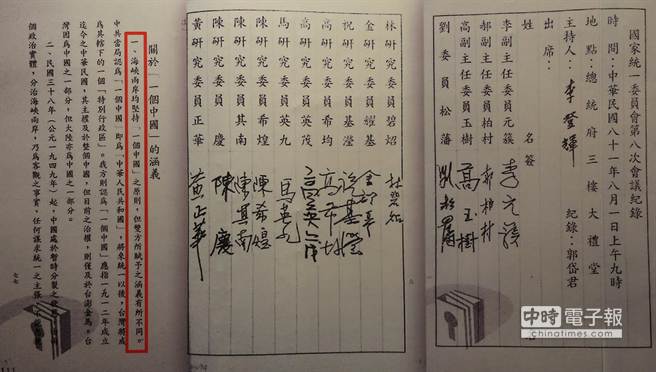 國家統一委員會第八次會議紀錄
時間：中華民國八十一年八月一日上午九時
地點：總統府三樓大禮堂
主持人：李登輝
紀錄：郭岱君
出席：
姓名
簽
李副主任委員元簇 李元簇
郝副主任委員柏村 郝柏村
高副主任委員玉樹 高玉樹
劉委員松藩 劉松藩
林研究委員碧炤 林碧炤
金研究委員耀基 金耀基
祝研究委員基瀅 祝基瀅
高研究委員希均 高希均
高研究委員英茂 高英茂
馬研究委員英九 馬英九
陳研究委員希煌 陳希煌
陳研究委員其南 陳其南
陳研究委員慶 陳慶
黃研究委員正華 黃正華
關於「一個中國」的涵義
一、海峽兩岸均堅持「一個中國」之原則，但雙方所賦予之涵義有所不同。
中共當局認為「一個中國」即為「中華人民共和國」，將來統一以後，台灣將成
為其轄下的一個「特別行政區」。我方則認為「一個中國」應指一九一二年成立
迄今之中華民國，其主權及於整個中國，但目前之治權，則僅及於台澎金馬。台
灣固為中國之一部分，但大陸亦為中國之一部分。
二、民國三十八年（公元一九四九年）起，中國處於暫時分裂之
個政治實體，分治海峽兩岸，乃為客觀之事實，任何謀求統一之主張
七七
中時電子報
chinatimes.com